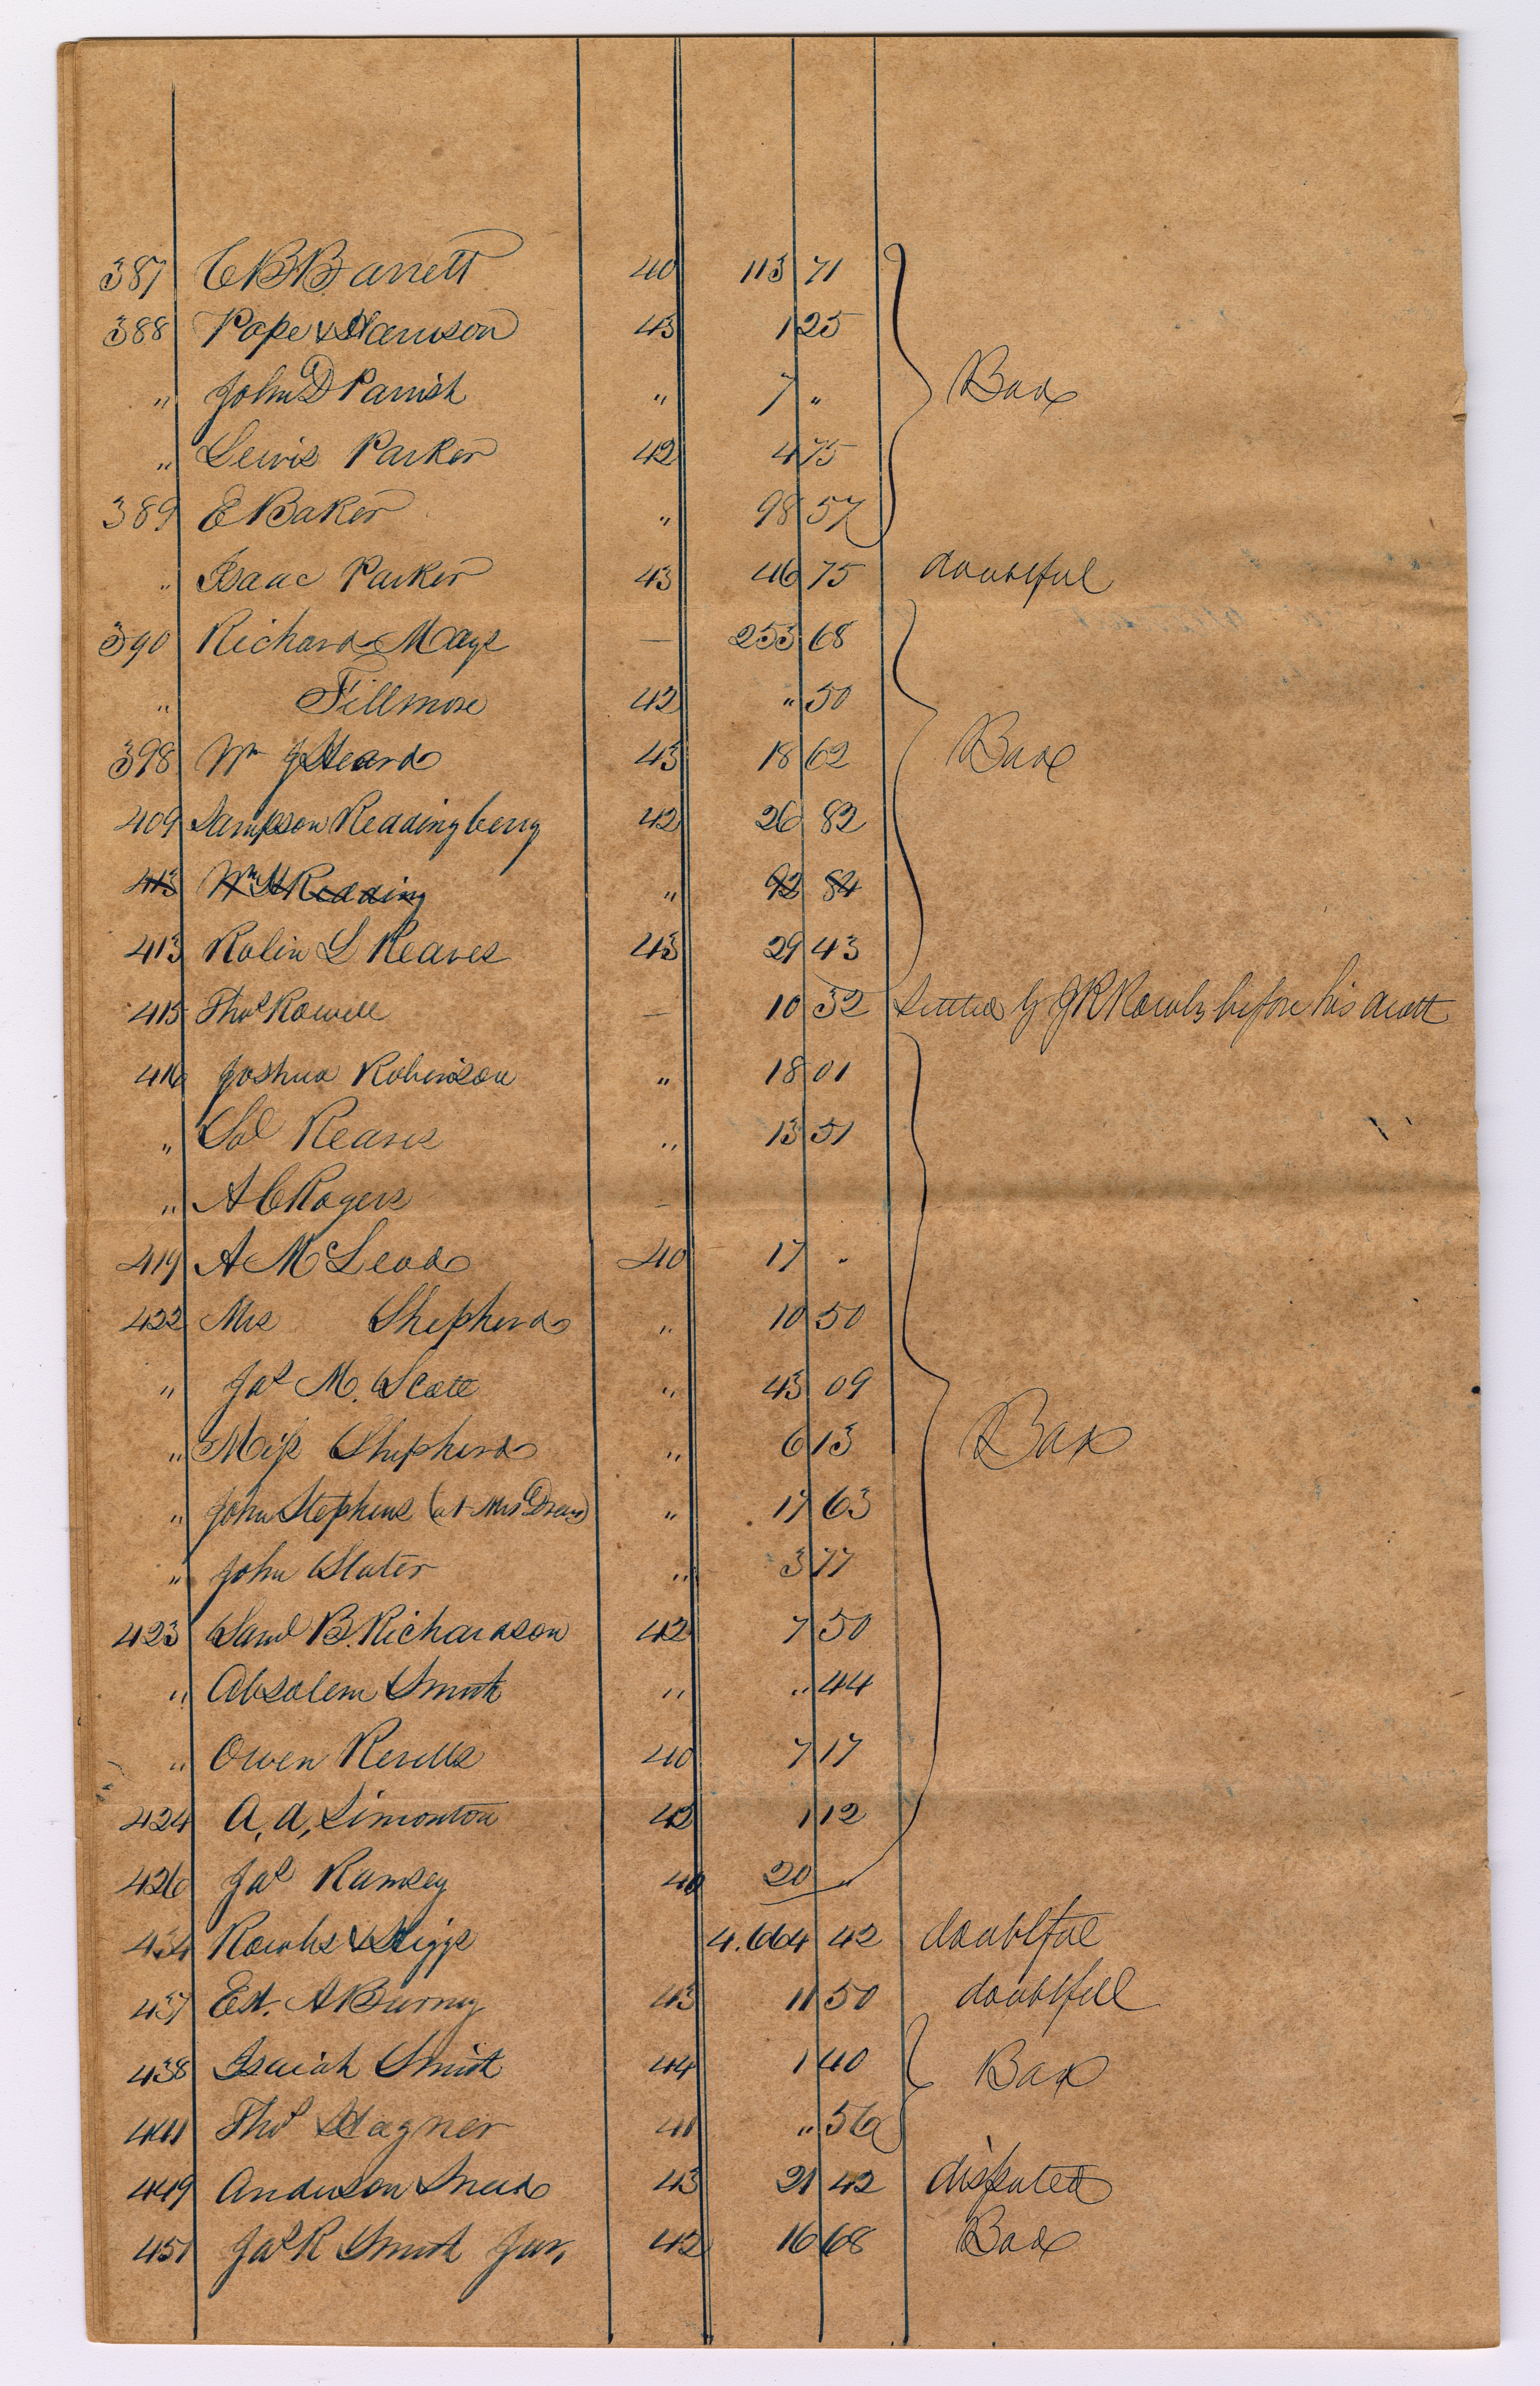 387 C B Barrett 40 113 71
388 Pope & Harrison 43 1 25
" John D Parrish " 7 " Bad
" Lewis Parker 42 4 75
389 E Baker " 98 57
" Isaac Parker 43 46 75 doubtful
390 Richard Mays — 253 68
" Fillmore 42 " 50
398 Wm J Heard 43 18 62 Bad
409 Sampson Readingberry 42 26 82
413 Wm H Redding " 92 84
413 Rolin L Reaves 43 29 43
415 Thos Rowell — 10 32 Settled by J R Rawls before his death
416 Joshua Robinson " 18 01
" Sol Reaves " 13 51
" A C Rogers —
419 A McLeod 40 17 "
422 Mrs Shepherd " 10 50
" Jas M. Scott " 43 09
" Miss Shepherd " 6 13 Bad
" John Stephens (at Mrs Drew) " 17 63
" John Slater " 3 77
423 Saml B. Richardson 42 7 50
" Absalem Smith " " 44
" Owen Revells 40 7 17
424 A, A, Simonton 42 1 12
426 Jas Ramsey 40 20 "
434 Rawls & Higgs 4.664 42 doubtful
437 Est. A Burney 43 11 50 doubtfull
438 Isaiah Smith 44 1 40 Bad
441 Thos Hagner 41 " 56
449 Anderson Snead 43 21 42 disputed
451 Jas R Smith Jur, 42 16 68 Bad